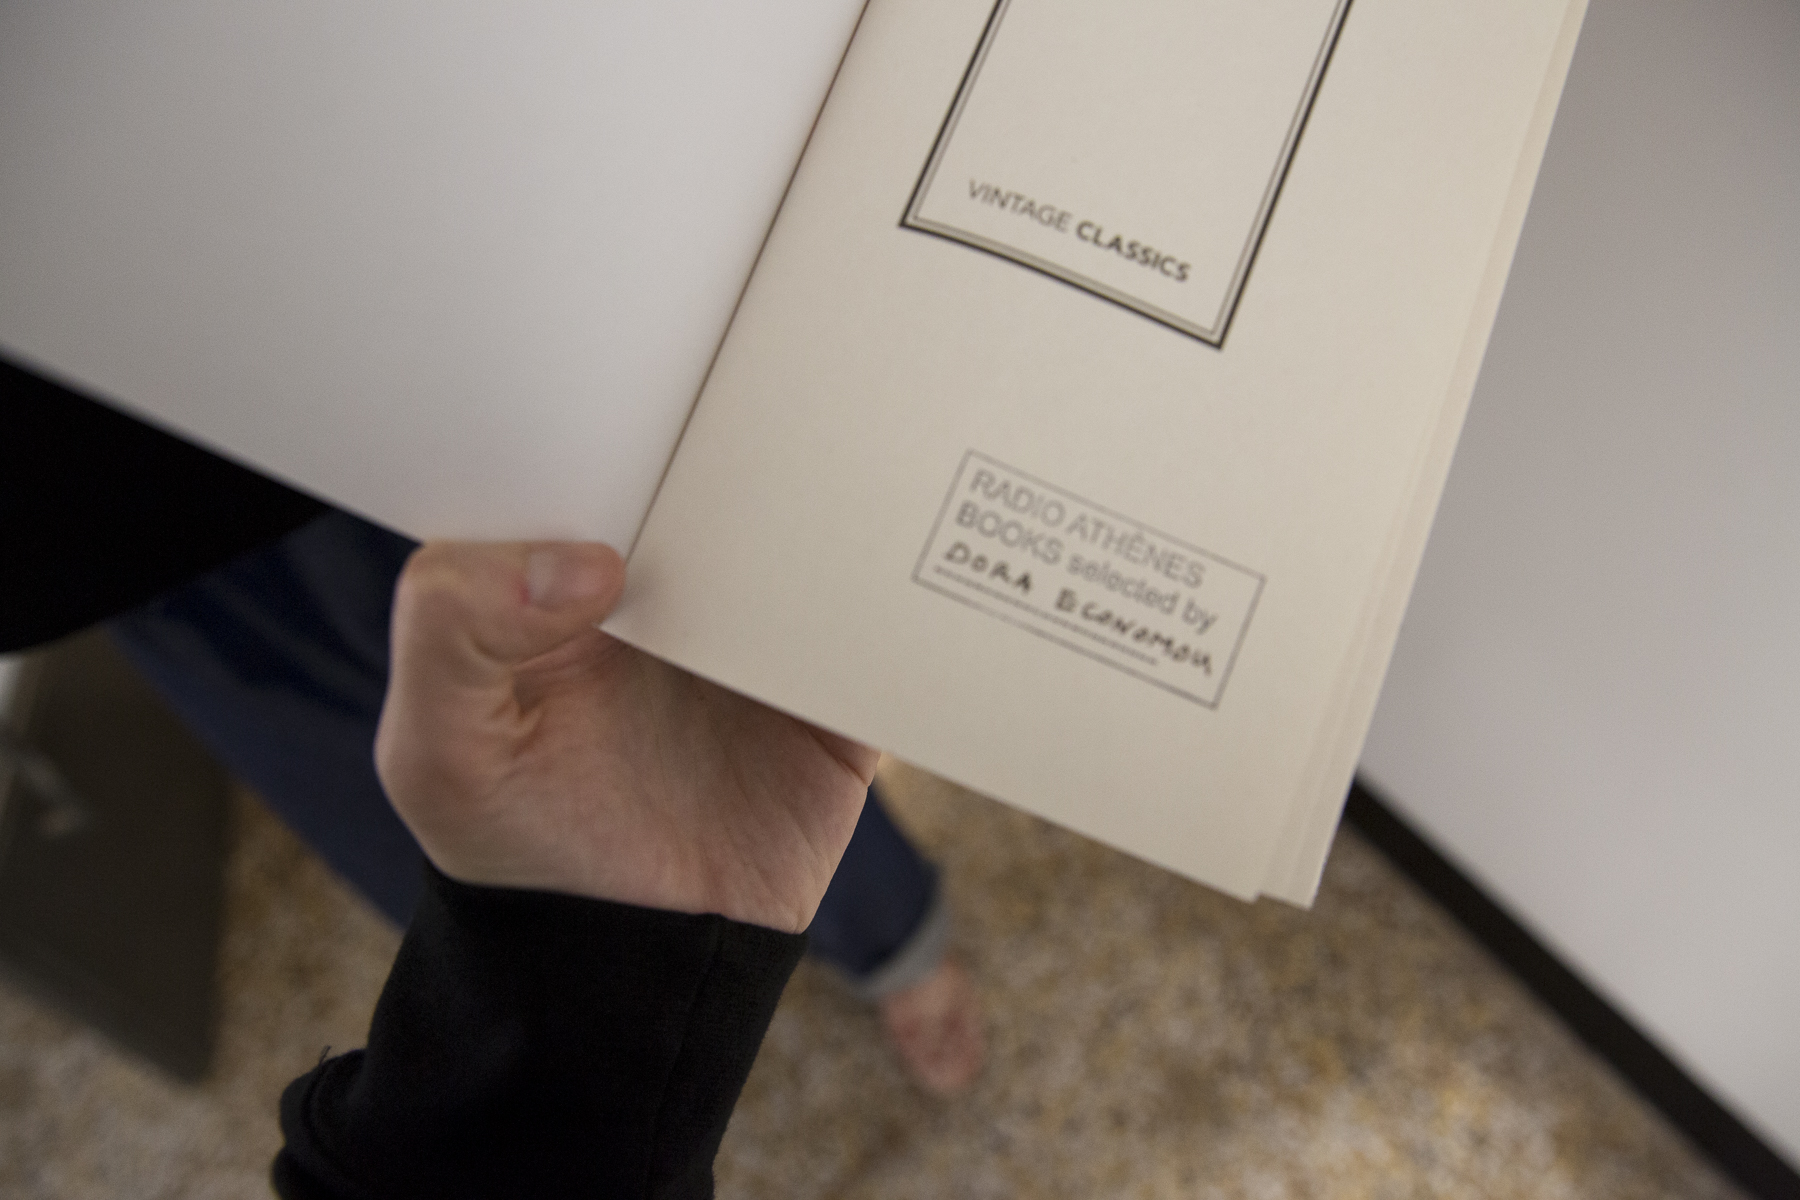 VINTAGE CLASSICS
RADIO ATHÈNES
BOOKS selected by
DORA ECONOMOU